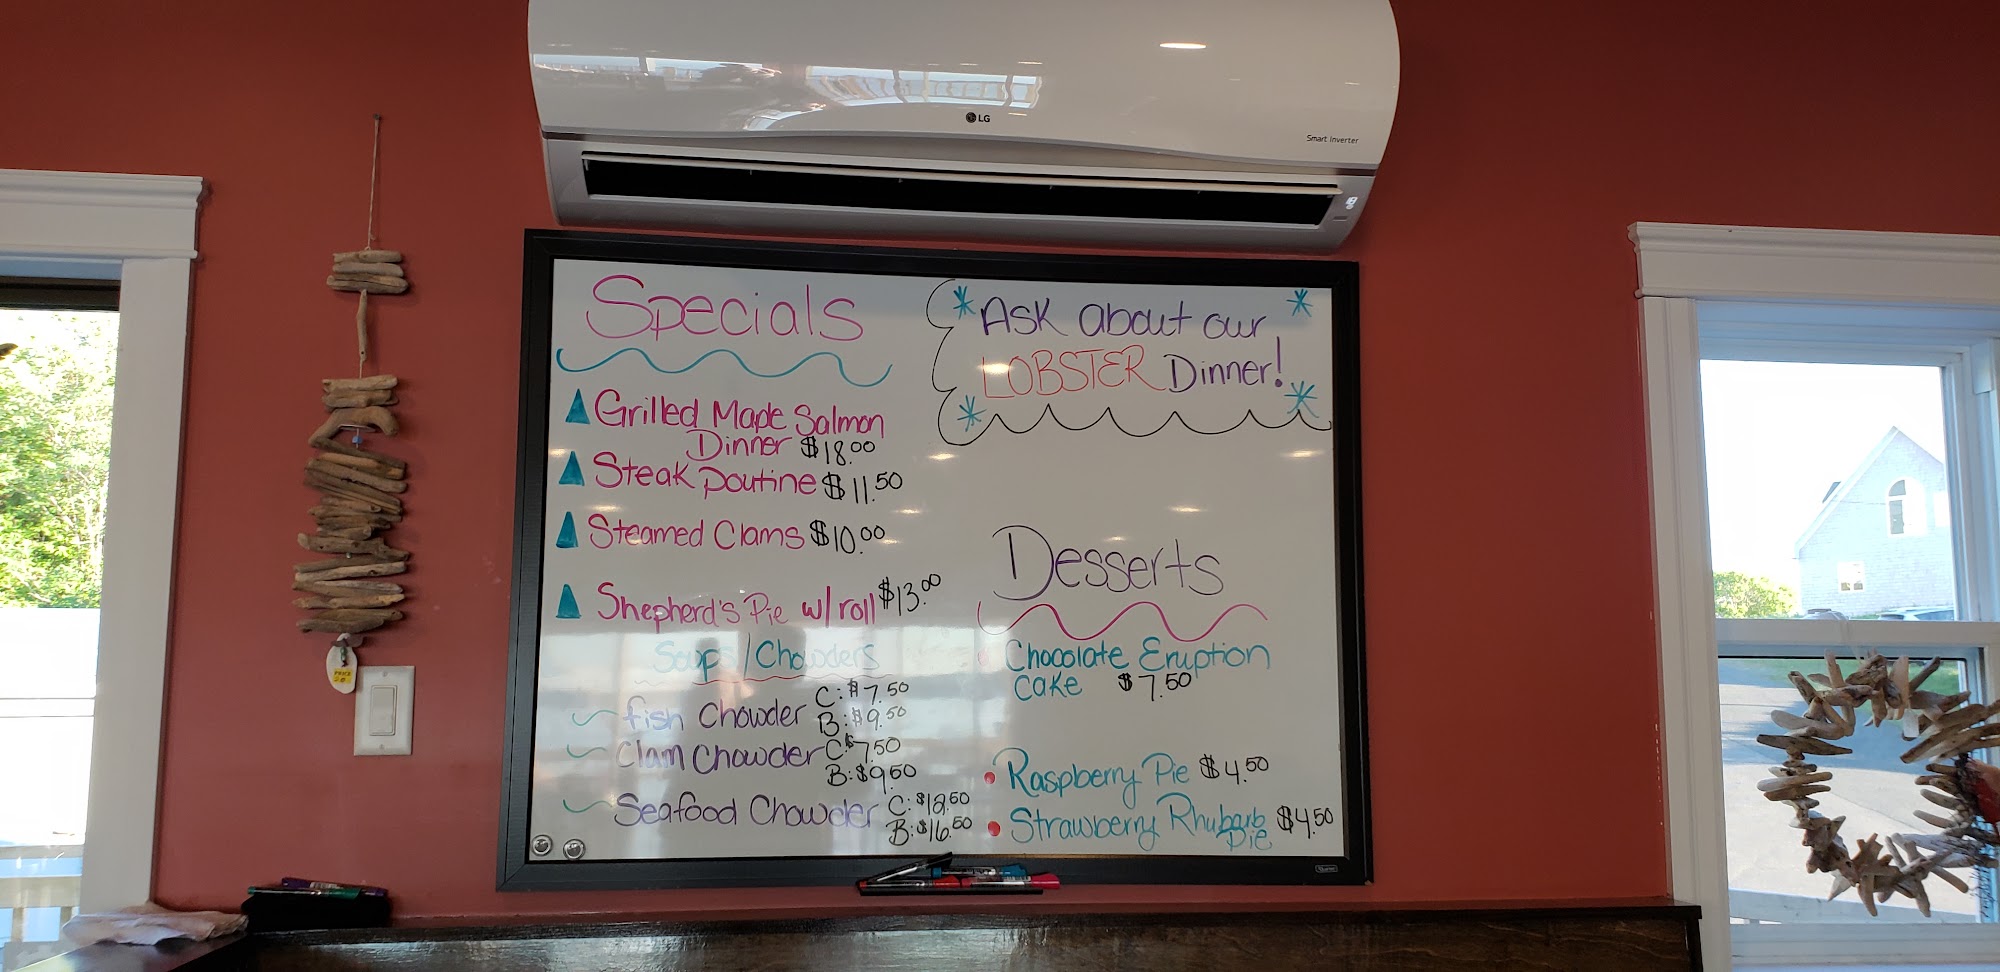 LG
Smart Inverter
Specials
Grilled Maple Salmon
Dinner $18.00
Steak Poutine $11.50
Steamed Clams $10.00
Shepherd's Pie w/ roll $13.00
Soups/Chowders
fish Chowder C: $7.50
B: $9.50
Clam Chowder C: $7.50
B: $9.50
Seafood Chowder C: $12.50
B: $16.50
Ask about our
LOBSTER Dinner!
Desserts
Chocolate Eruption
Cake $7.50
Raspberry Pie $4.50
Strawberry Rhubarb $4.50
Pie
PRICE